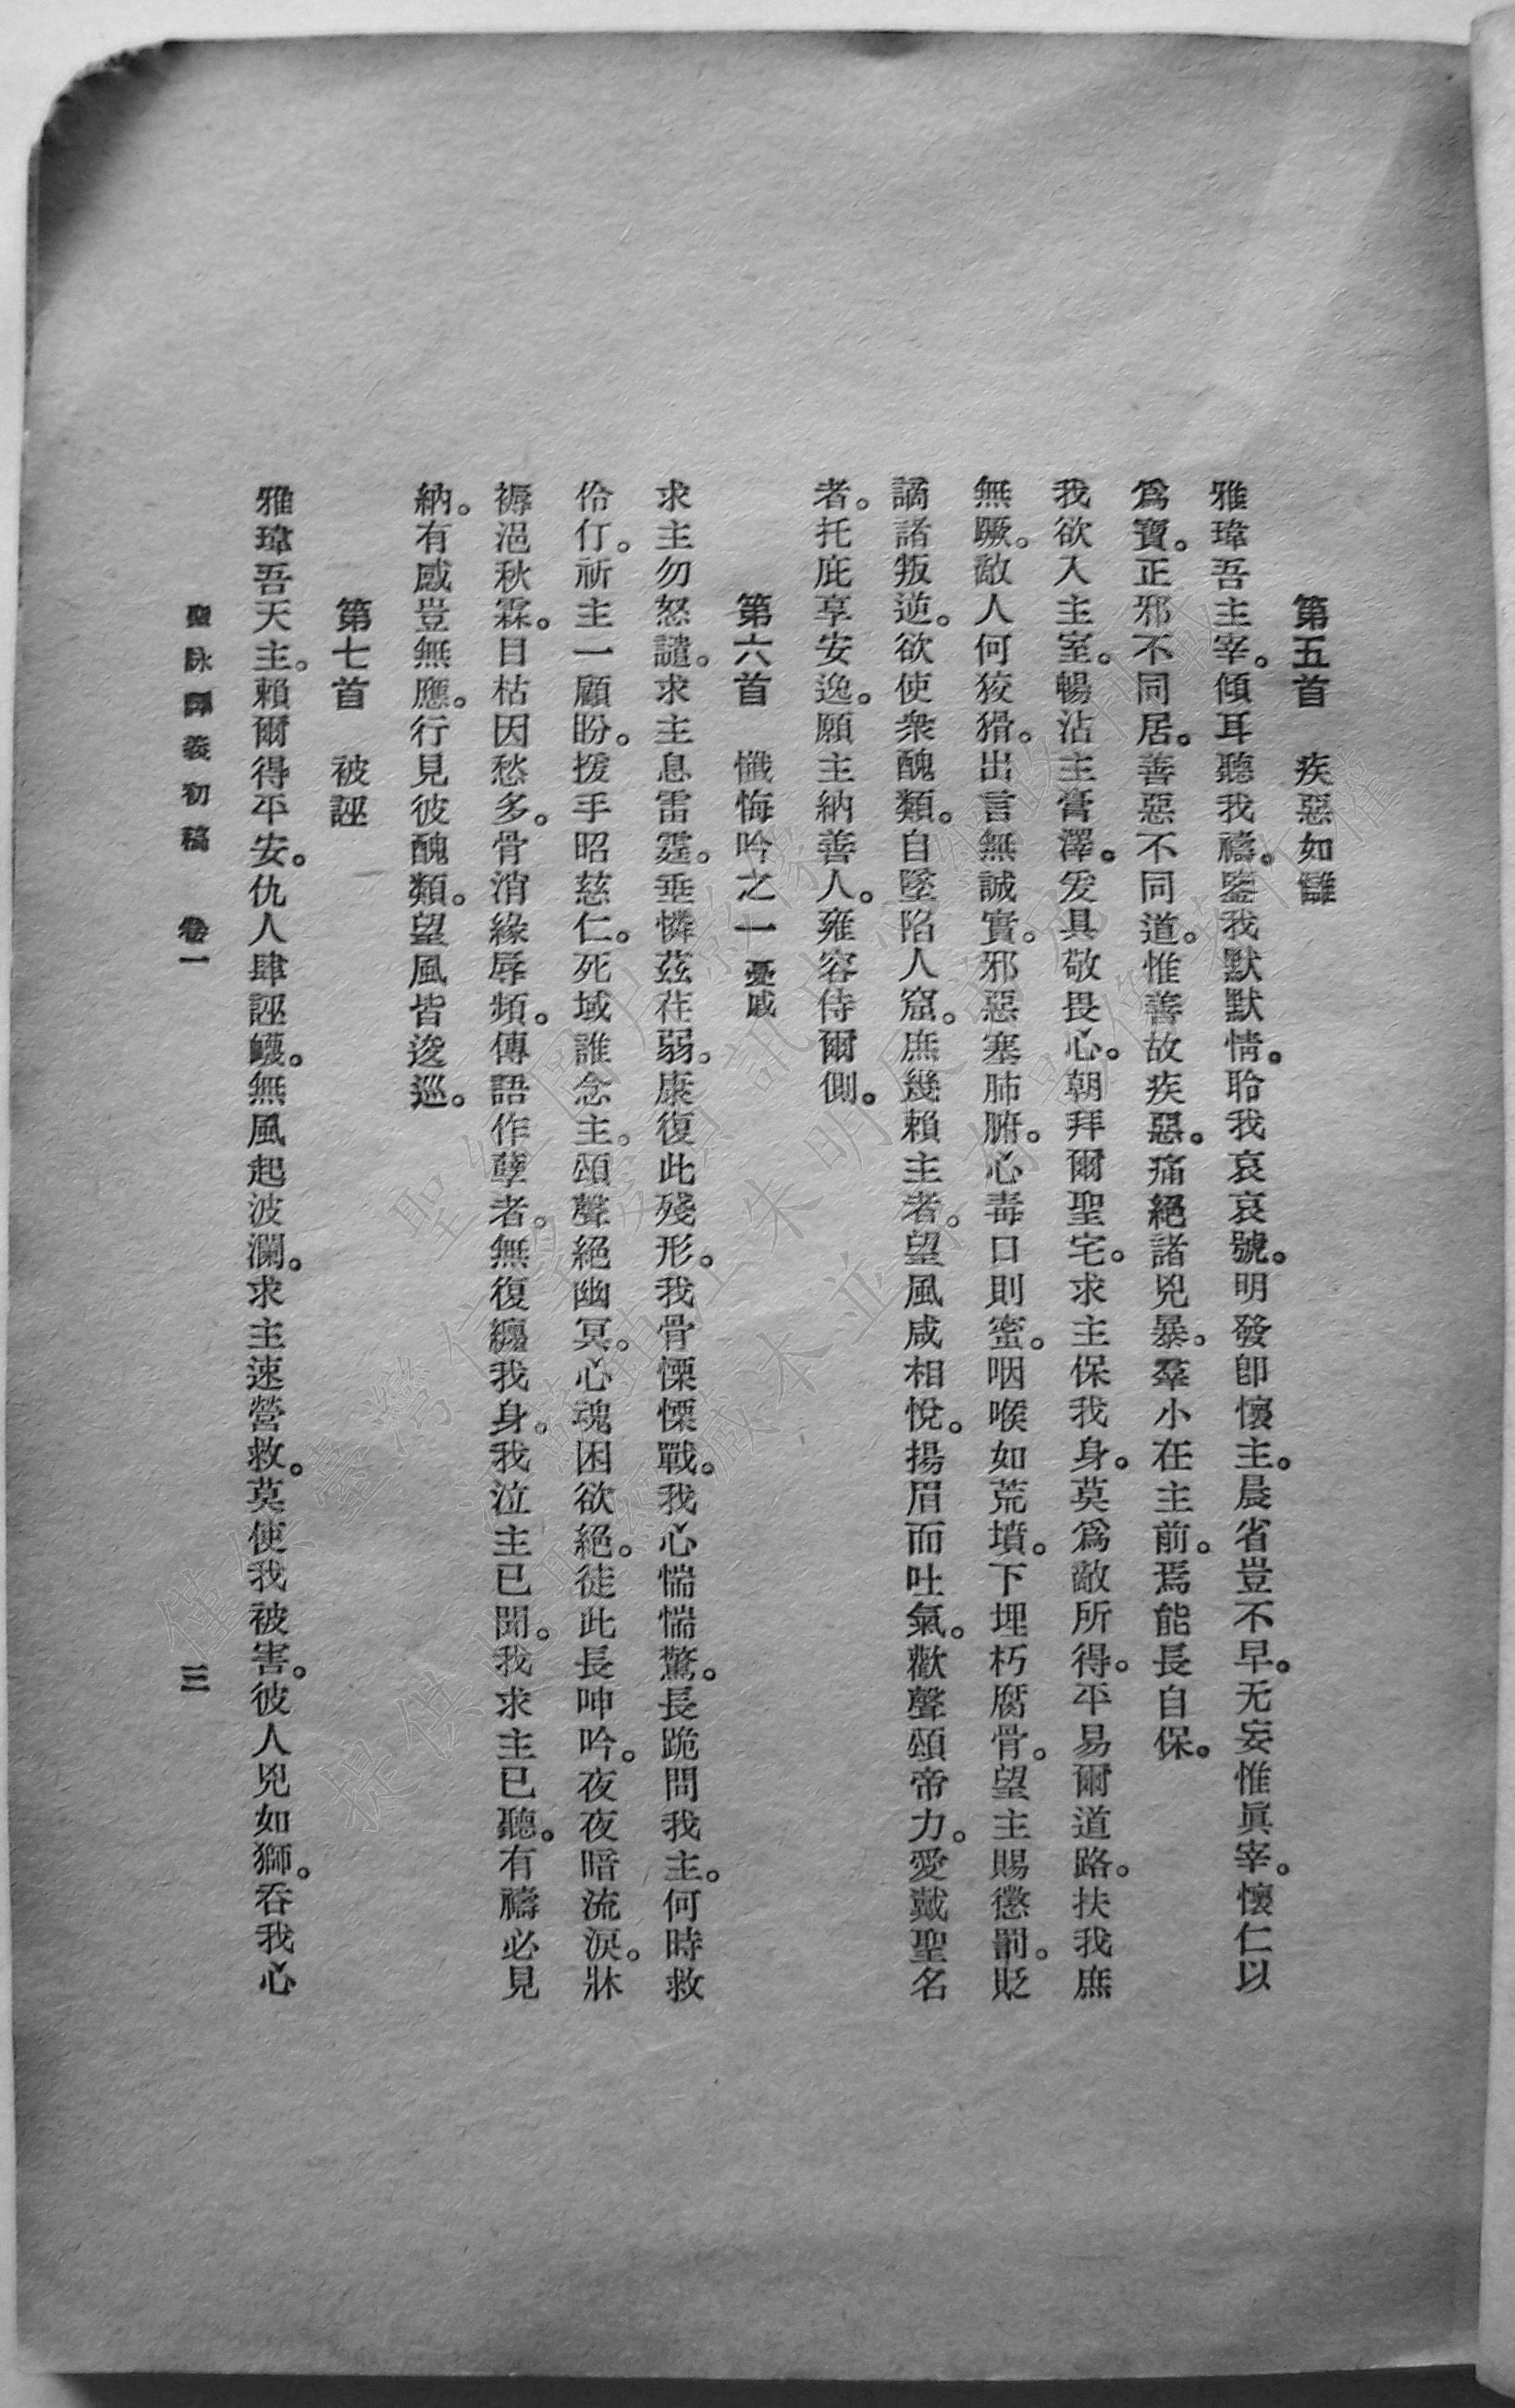 第五首　疾惡如讎
雅瑋吾主宰。傾耳聽我禱。鑒我默默情。聆我哀哀號。明發卽懷主。晨省豈不早。无妄惟眞宰。懷仁以
爲寶。正邪不同居。善惡不同道。惟善故疾惡。痛絕諸兇暴。羣小在主前。焉能長自保。
我欲入主室。暢沾主膏澤。爰具敬畏心。朝拜爾聖宅。求主保我身。莫爲敵所得。平易爾道路。扶我庶
無蹶。敵人何狡猾。出言無誠實。邪惡塞肺腑。心毒口則蜜。咽喉如荒墳。下埋朽腐骨。望主賜懲罰。貶
謫諸叛逆。欲使衆醜類。自墜陷人窟。庶幾賴主者。望風咸相悅。揚眉而吐氣。歡聲頌帝力。愛戴聖名
者。托庇享安逸。願主納善人。雍容侍爾側。
第六首　懺悔吟之一 憂戚
求主勿怒譴。求主息雷霆。垂憐茲荏弱。康復此殘形。我骨慄慄戰。我心惴惴驚。長跪問我主。何時救
伶仃。祈主一顧盼。援手昭慈仁。死域誰念主。頌聲絕幽冥。心魂困欲絕。徒此長呻吟。夜夜暗流淚。牀
褥浥秋霖。目枯因愁多。骨消緣辱頻。傳語作孽者。無復纏我身。我泣主已聞。我求主已聽。有禱必見
納。有感豈無應。行見彼醜類。望風皆逡巡。
第七首　被誣
雅瑋吾天主。賴爾得平安。仇人肆誣衊。無風起波瀾。求主速營救。莫使我被害。彼人兇如獅。吞我心
聖詠譯義初稿　卷一　三
僅供臺灣信望愛資訊中心網路下載
提供